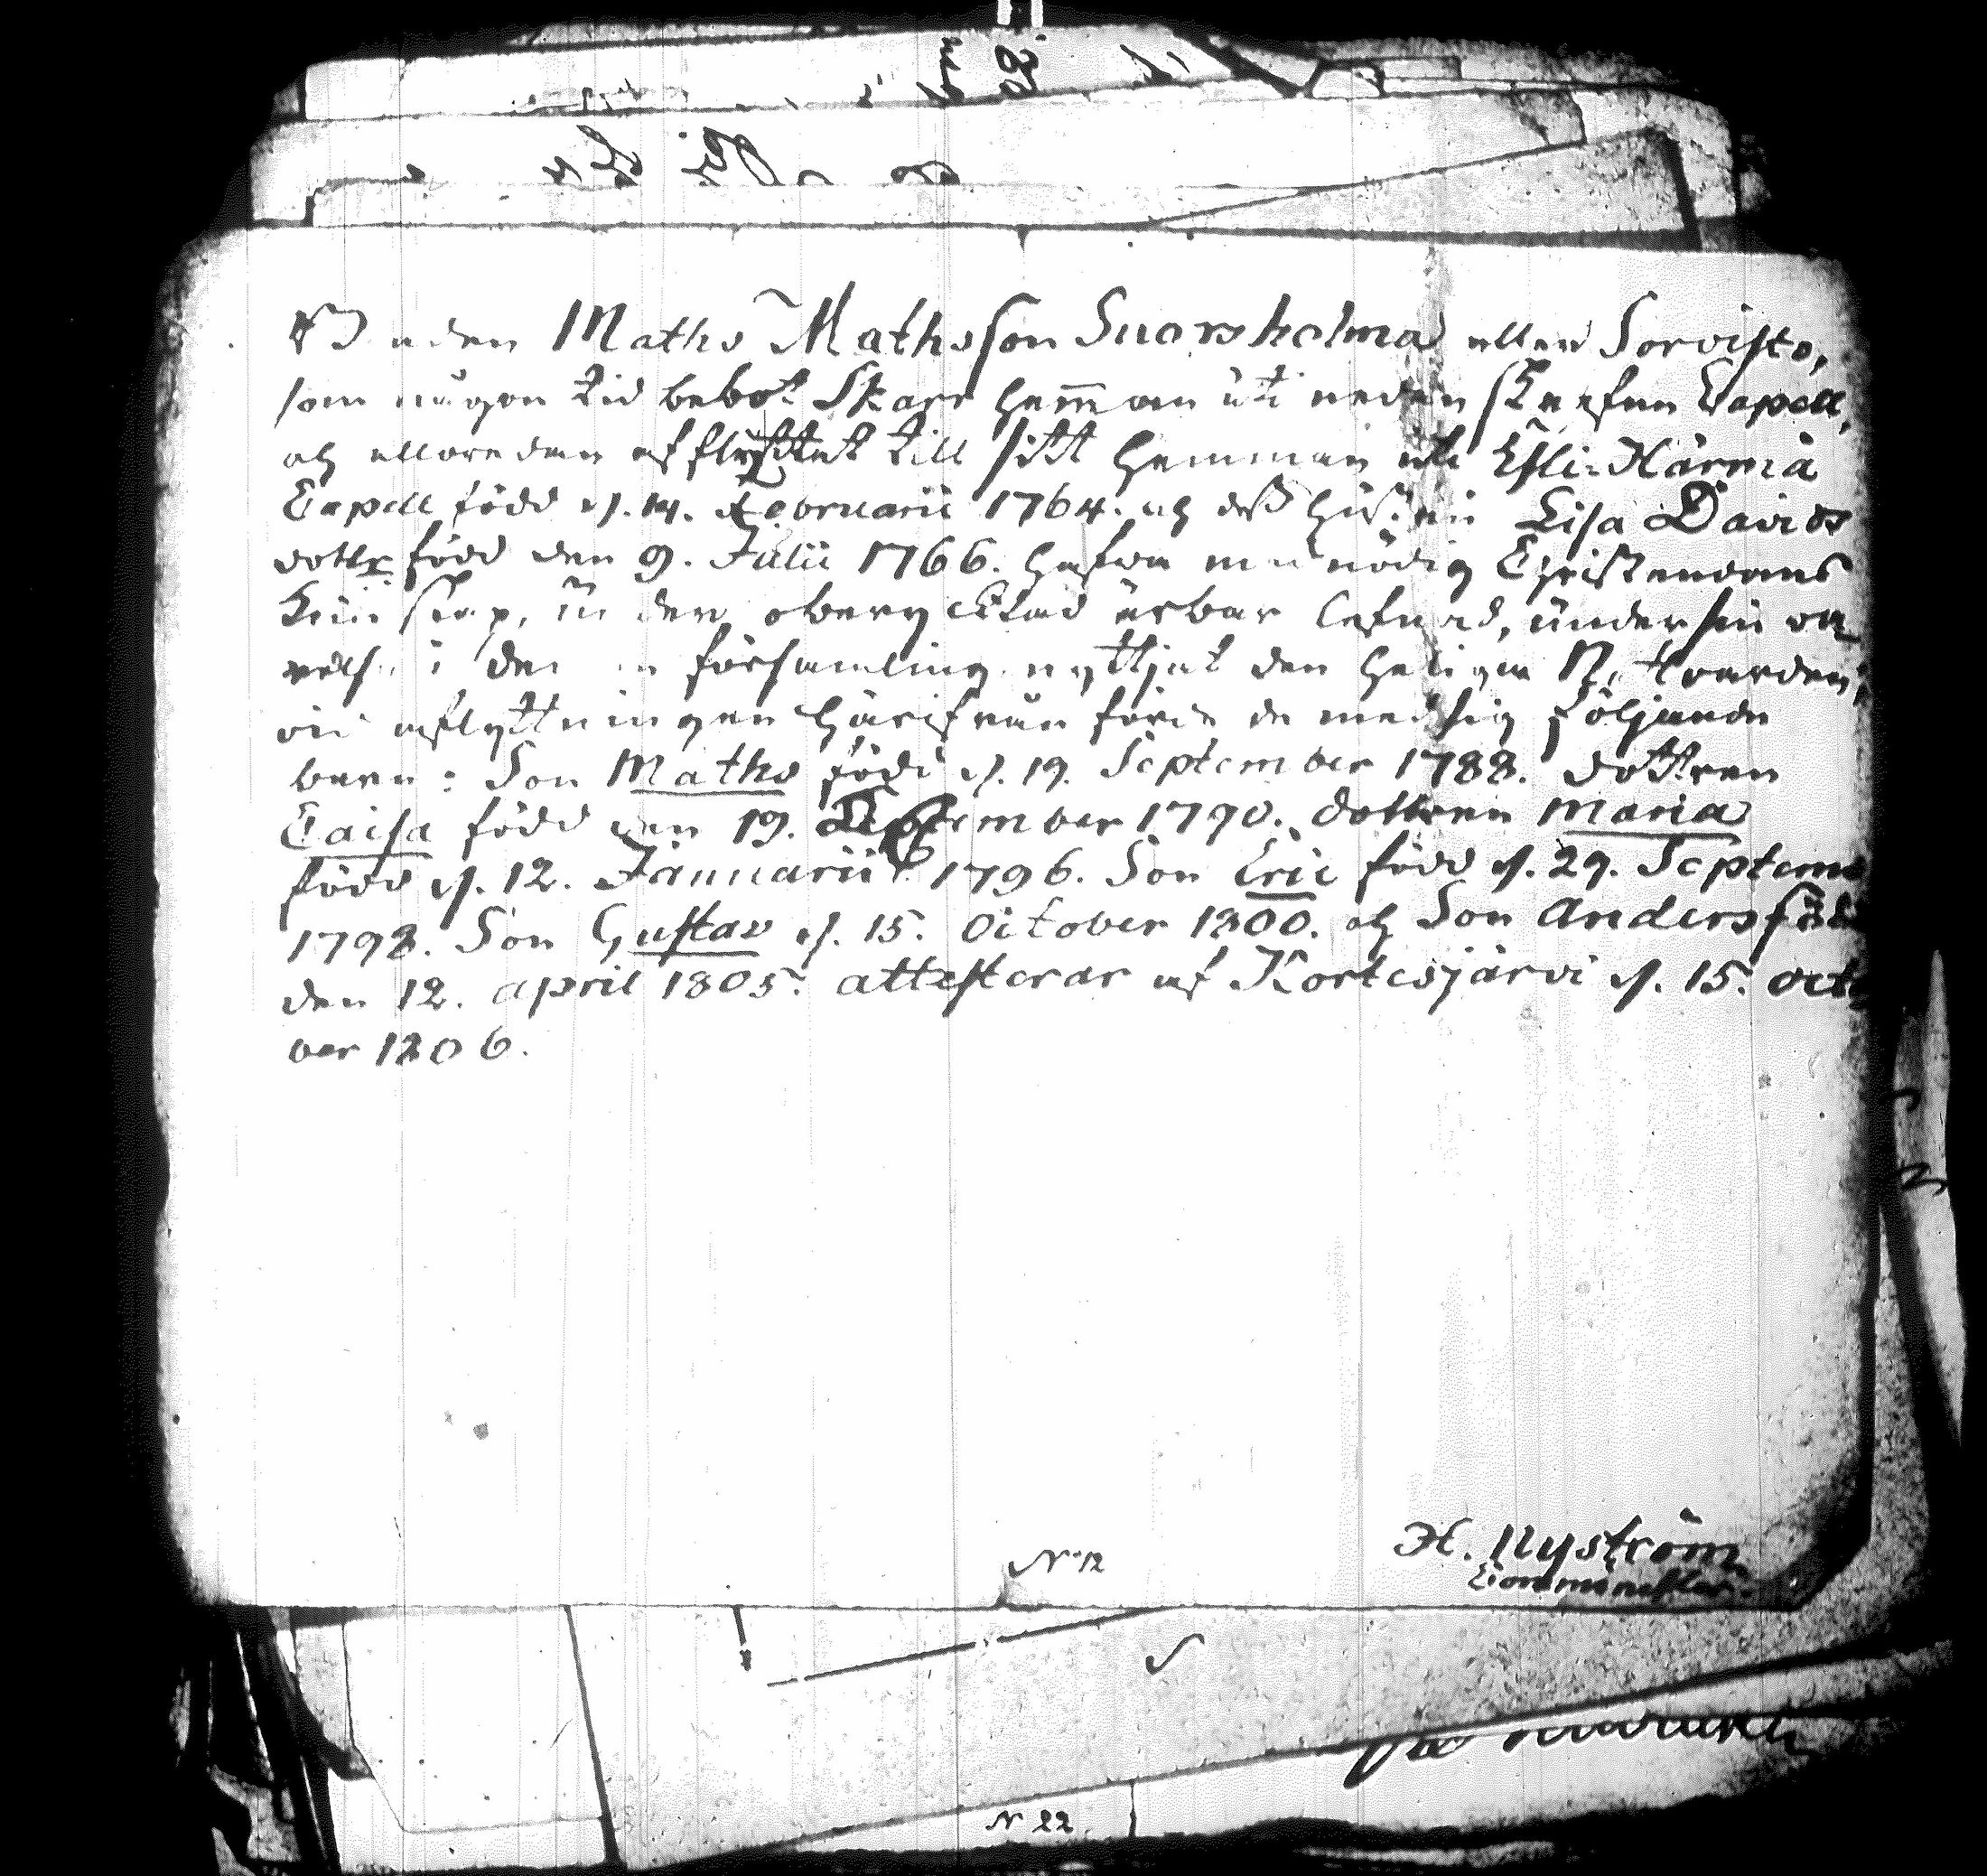 Bonden Maths Mathsson Suorsholma eller Sorvisto,
som någon tid bebot Skarp Hemman uti nedanskrefne Capell,
och allaredan afflyttat till sitt Hemman uti Ylli-Härmä
Capell född d. 14. Februarii 1764. och dess Hustru Lisa Davids
dotter född den 9. Julii 1766. hafva med nödig Christendoms
Kunskap, under oberycktad ärbar lefnad, under sin va
relse i denna församling nyttjat den Heliga Nattvarden,
vid afflyttningen härifrån förde de med sig följande
barn: Son Maths född d. 19. September 1788. dottren
Caisa född den 19. December 1790. dottren Maria
född d. 12. Januarii 1796. Son Eric född d. 29. Septem
1798. Son Gustav d. 15. October 1800. och Son Anders född
den 12. april 1805. attesterar af Kortesjärvi d. 15. octo
ber 1806.
N 12
H. Nyström
Comminister.
N 22.